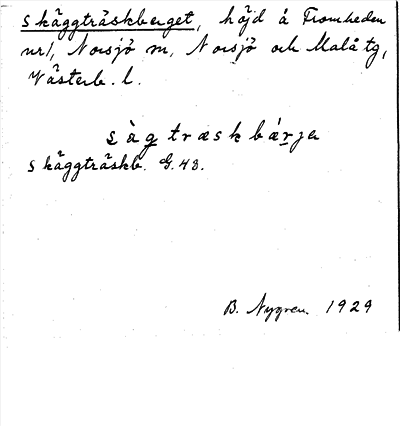 Skäggträskberget, höjd å Fromheden
nr 1, Norsjö sn, Norsjö och Malå tg,
Västerb. l.
s ä g træsk bárjer
Skäggträskb. G. 43.
B. Nygren 1929